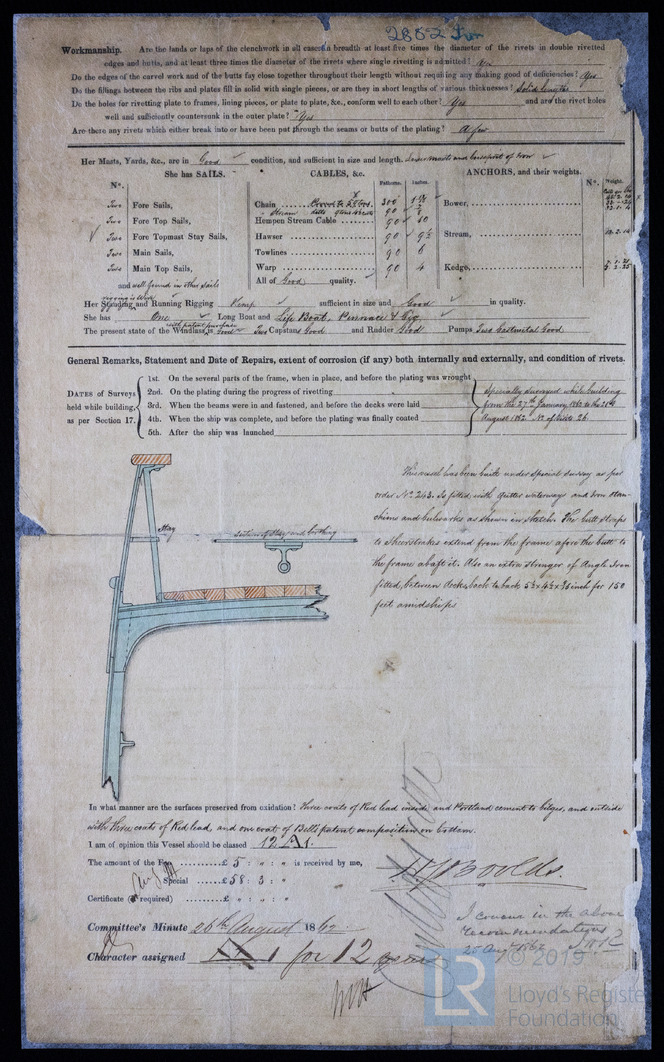 2852 Iron
Workmanship. Are the lands or laps of the clenchwork in all cases in breadth at least five times the diameter of the rivets in double rivetted
edges and butts, and at least three times the diameter of the rivets where single rivetting is admitted? Yes
Do the edges of the carvel work and of the butts fay close together throughout their length without requiring any making good of deficiencies? Yes
Do the fillings between the ribs and plates fill in solid with single pieces, or are they in short lengths of various thicknesses? Solid lengths
Do the holes for rivetting plate to frames, lining pieces, or plate to plate, &c., conform well to each other? Yes and are the rivet holes
well and sufficiently countersunk in the outer plate? Yes
Are there any rivets which either break into or have been put through the seams or butts of the plating? A few
Her Masts, Yards, &c., are in Good condition, and sufficient in size and length. Lower masts and bowsprit of Iron
She has SAILS. CABLES, &c. Fathoms. Inches. ANCHORS, and their weights. Nº. Weight.
Nº.
Two Fore Sails, Chain 300 Bower,
Two Fore Top Sails, Hempen Stream Cable 90 10
Two Fore Topmast Stay Sails, Hawser 90 Stream,
Two Main Sails, Towlines 90 6
Two Main Top Sails, Warp 90 4 Kedge,
and well found in other sails All of Good quality.
Her Standing and Running Rigging Hemp sufficient in size and Good in quality.
She has One Long Boat and Life Boat, Pinnace & Gig
with patent purchase
The present state of the Windlass is Good Two Capstans Good and Rudder Good Pumps Two Good
General Remarks, Statement and Date of Repairs, extent of corrosion (if any) both internally and externally, and condition of rivets.
DATES of Surveys held while building, as per Section 17.
1st. On the several parts of the frame, when in place, and before the plating was wrought
2nd. On the plating during the progress of rivetting
3rd. When the beams were in and fastened, and before the decks were laid
4th. When the ship was complete, and before the plating was finally coated
5th. After the ship was launched
Specially surveyed while building
from the 27th January 1862 to the
August 1862. Nº of visits 26.
Stay
Section of Stay and
This vessel has been built under special survey as per
order Nº 243. Is fitted with gutter waterways and iron stan-
chions and bulwarks as shewn in sketch. The butt straps
to Sheerstrakes extend from the frame afore the butt to
the frame abaft it. Also an extra stringer of Angle Iron
fitted, between decks, back to back for 150
feet amidships
In what manner are the surfaces preserved from oxidation? Three coats of Red lead inside and Portland cement to bilges, and outside
with three coats of Red lead, and one coat of Bell's patent composition on bottom.
I am of opinion this Vessel should be classed 12 A 1.
The amount of the Fee £ 5 : " : " is received by me,
Special £ 58 : 3 : "
Certificate (if required) £ " : " : "
I concur in the above
recommendations
25 Aug 1862
Committee's Minute 26th August 1862
Character assigned A 1 for 12 years
LR
© 2019
Lloyd's Registe
Foundation